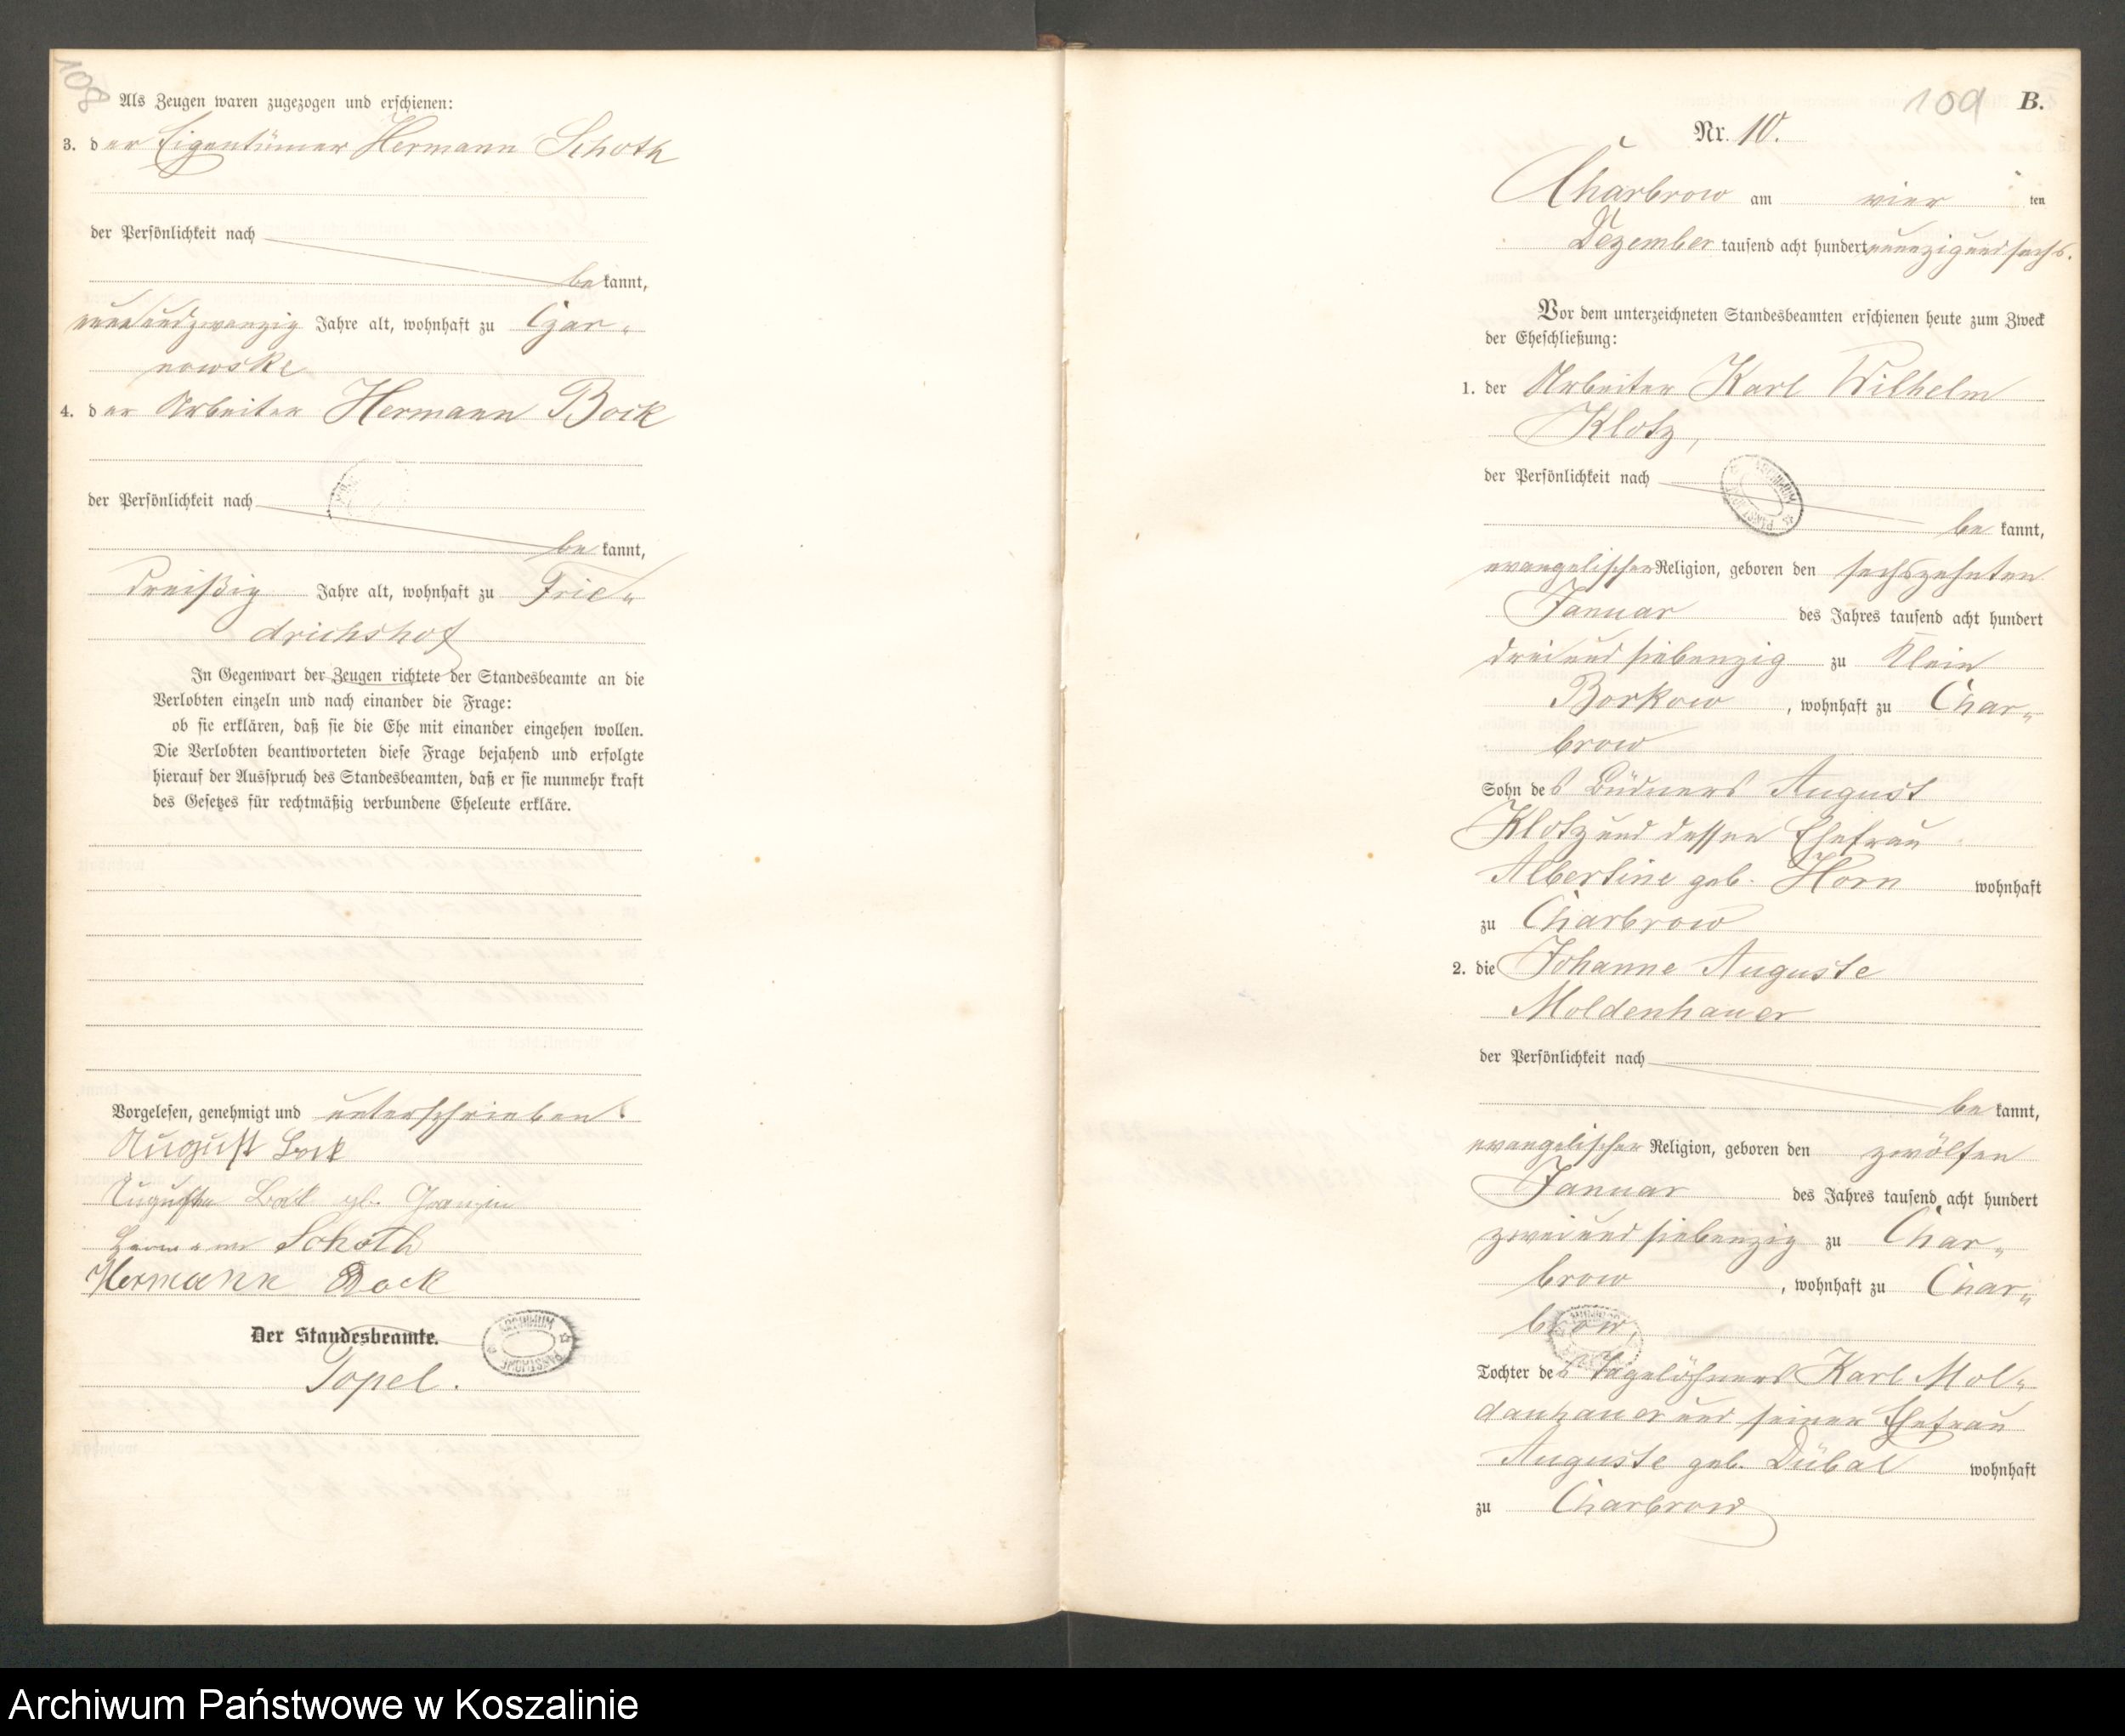 108
Als Zeugen waren zugezogen und erschienen:
3. der Eigentümer Hermann Schoth
der Persönlichkeit nach
be kannt,
neunundzwanzig Jahre alt, wohnhaft zu Czar-
nowske
4. der Arbeiter Hermann Bock
der Persönlichkeit nach
be kannt,
dreißig Jahre alt, wohnhaft zu Frie-
drichshof
In Gegenwart der Zeugen richtete der Standesbeamte an die
Verlobten einzeln und nach einander die Frage:
ob sie erklären, daß sie die Ehe mit einander eingehen wollen.
Die Verlobten beantworteten diese Frage bejahend und erfolgte
hierauf der Ausspruch des Standesbeamten, daß er sie nunmehr kraft
des Gesetzes für rechtmäßig verbundene Eheleute erkläre.
Vorgelesen, genehmigt und unterschrieben
August Bock
Auguste Bock gb. Granzin
Hermann Schoth
Hermann Bock
Der Standesbeamte.
Topel.
ARCHIWUM PAŃSTWOWE
109
B.
Nr. 10.
Charbrow am vier ten
Dezember tausend acht hundert neunzigundsechs.
Vor dem unterzeichneten Standesbeamten erschienen heute zum Zweck
der Eheschließung:
1. der Arbeiter Karl Wilhelm
Klotz,
der Persönlichkeit nach
be kannt,
evangelischer Religion, geboren den sechszehnten
Januar des Jahres tausend acht hundert
dreiundsiebenzig zu Klein
Borkow, wohnhaft zu Char-
brow
Sohn des Büdners August
Klotz und dessen Ehefrau
Albertine geb. Horn wohnhaft
zu Charbrow
2. die Johanne Auguste
Moldenhauer
der Persönlichkeit nach
be kannt,
evangelischer Religion, geboren den zwölften
Januar des Jahres tausend acht hundert
zweiundsiebenzig zu Char-
brow, wohnhaft zu Char-
brow,
Tochter des Tagelöhners Karl Mol-
danhauer und seiner Ehefrau
Auguste geb. Dübal wohnhaft
zu Charbrow
Archiwum Państwowe w Koszalinie